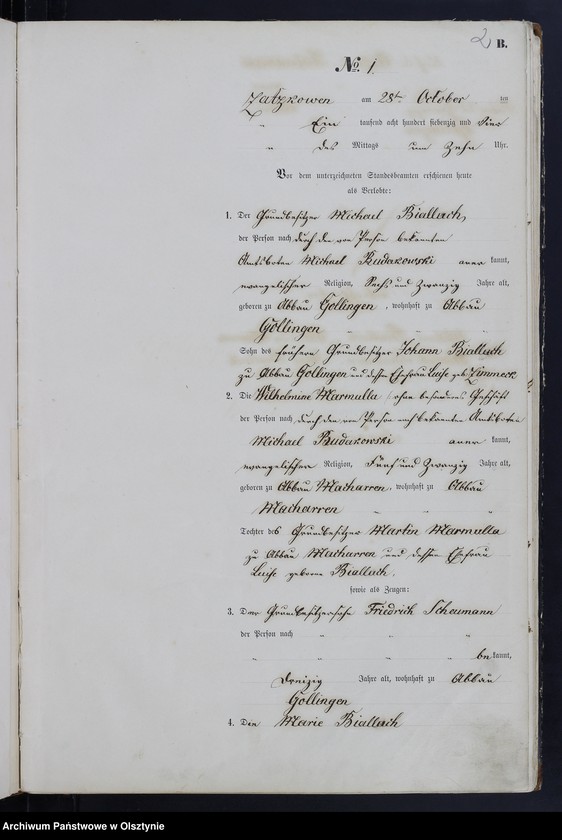 2 B.
No. 1
Zatzkowen am 28ten October ten
" Ein tausend acht hundert siebenzig und Vier
" des Mittags um Zehn Uhr.
Vor dem unterzeichneten Standesbeamten erschienen heute
als Verlobte:
1. Der Grundbesitzer Michael Biallach,
der Person nach durch den von Person bekannten
Amtsboten Michael Rudakowski aner kannt,
evangelischer Religion, Sechs und Zwanzig Jahre alt,
geboren zu Abbau Gollingen, wohnhaft zu Abbau
Gollingen " " "
Sohn des früheren Grundbesitzer Johann Biallach
zu Abbau Gollingen und dessen Ehefrau Luise geb. Zimmeck
2. Die Wilhelmine Marmulla, ohne besonderes Geschäft
der Person nach durch den von Person bekannten Amtsboten
Michael Rudakowski aner kannt,
evangelischer Religion, Fünf und Zwanzig Jahre alt,
geboren zu Abbau Macharren, wohnhaft zu Abbau
Macharren " " "
Tochter des Grundbesitzer Martin Marmulla
zu Abbau Macharren und dessen Ehefrau
Luise geborene Biallach.
sowie als Zeugen:
3. Der Grundbesitzersohn Friedrich Scheumann
der Person nach " " "
" " " " be kannt,
Dreizig Jahre alt, wohnhaft zu Abbau
Gollingen
4. Den Marie Biallach
Archiwum Państwowe w Olsztynie